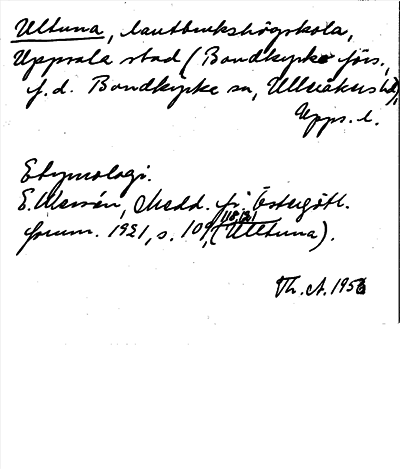 Ultuna, lantbrukshögskola,
Uppsala stad (Bondkyrko förs.,
f.d. Bondkyrko sn, Ulleråkers hd),
Upps. l.
Etymologi.
E. Wessén, Medd. fr. Östergötl.
118, 121
fornm. 1921, s. 109, (Ulltuna).
Th. A. 1956